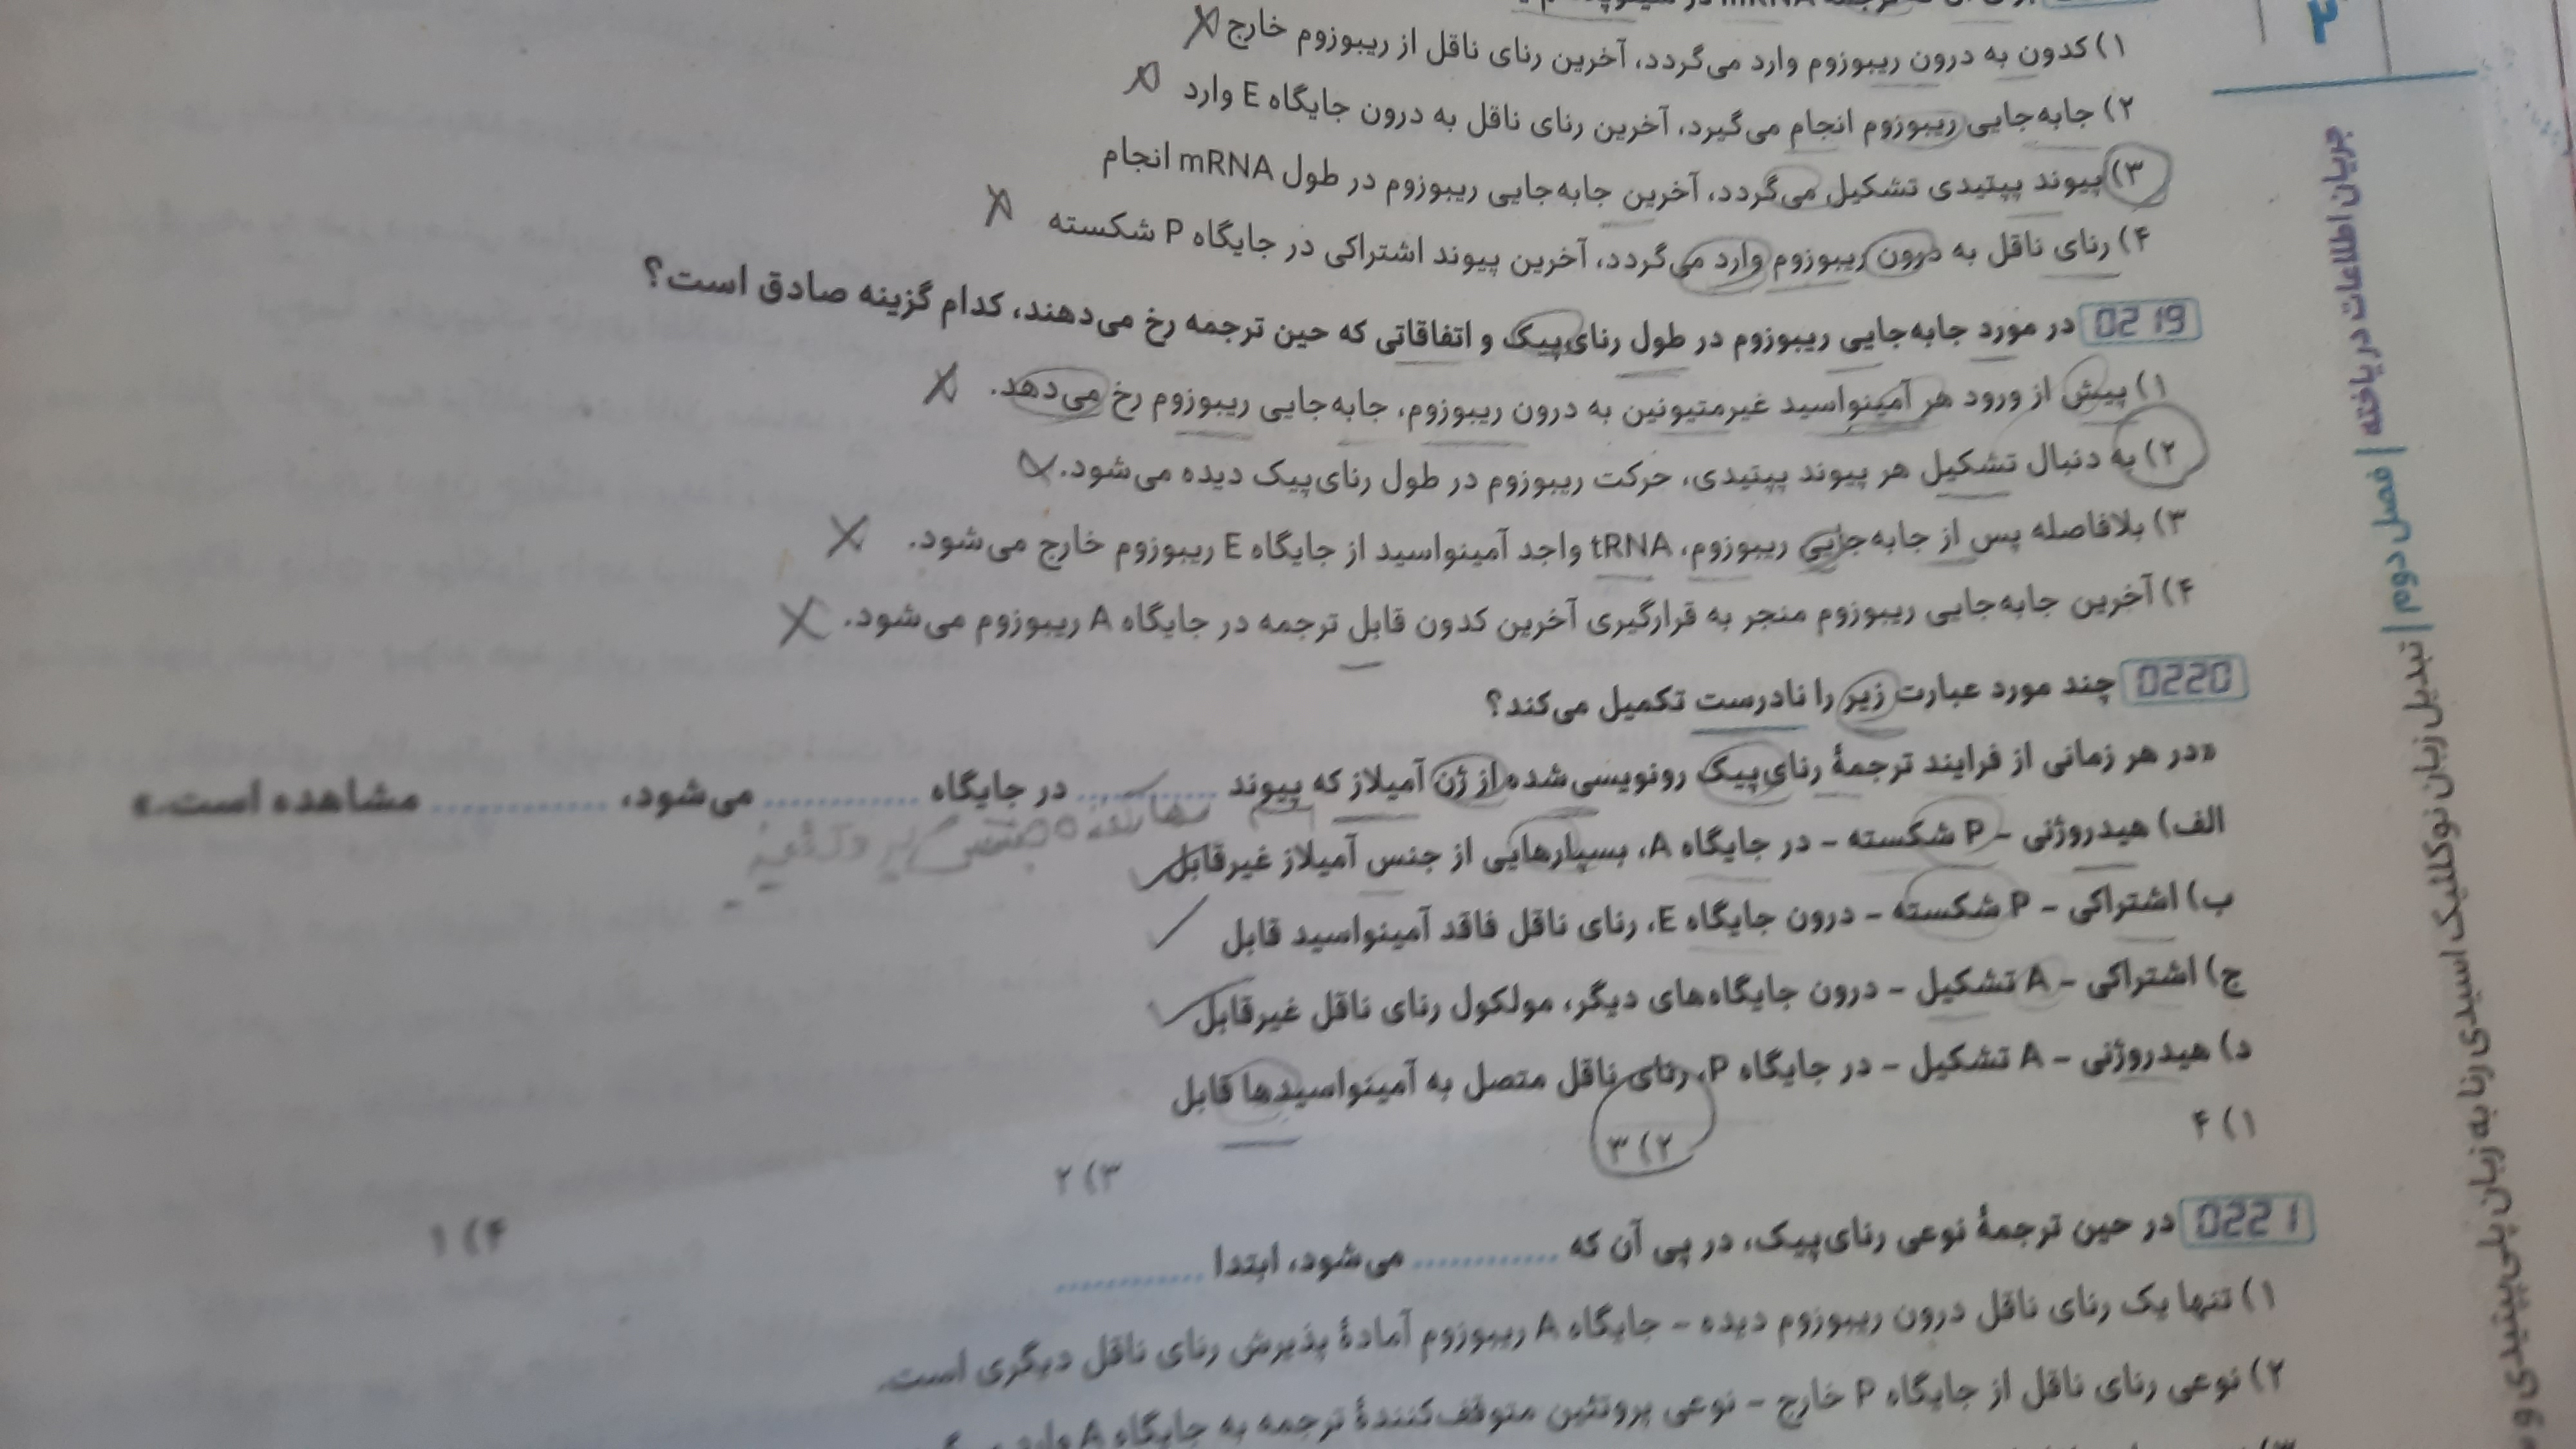 ۱) کدون به درون ریبوزوم وارد می‌گردد، آخرین رنای ناقل از ریبوزوم خارج
۲) جابه‌جایی ریبوزوم انجام می‌گیرد، آخرین رنای ناقل به درون جایگاه E وارد
۳) پیوند پپتیدی تشکیل می‌گردد، آخرین جابه‌جایی ریبوزوم در طول mRNA انجام
۴) رنای ناقل به درون ریبوزوم وارد می‌گردد، آخرین پیوند اشتراکی در جایگاه P شکسته
0219 در مورد جابه‌جایی ریبوزوم در طول رنای‌پیک و اتفاقاتی که حین ترجمه رخ می‌دهند، کدام گزینه صادق است؟
۱) پیش از ورود هر آمینواسید غیرمتیونین به درون ریبوزوم، جابه‌جایی ریبوزوم رخ می‌دهد.
۲) به دنبال تشکیل هر پیوند پپتیدی، حرکت ریبوزوم در طول رنای‌پیک دیده می‌شود.
۳) بلافاصله پس از جابه‌جایی ریبوزوم، tRNA واجد آمینواسید از جایگاه E ریبوزوم خارج می‌شود.
۴) آخرین جابه‌جایی ریبوزوم منجر به قرارگیری آخرین کدون قابل ترجمه در جایگاه A ریبوزوم می‌شود.
0220 چند مورد عبارت زیر را نادرست تکمیل می‌کند؟
«در هر زمانی از فرایند ترجمهٔ رنای‌پیک رونویسی‌شده از ژن آمیلاز که پیوند ............ در جایگاه ............ می‌شود، ............ مشاهده است.»
الف) هیدروژنی – P شکسته – در جایگاه A، بسپارهایی از جنس آمیلاز غیرقابل
ب) اشتراکی – P شکسته – درون جایگاه E، رنای ناقل فاقد آمینواسید قابل
ج) اشتراکی – A تشکیل – درون جایگاه‌های دیگر، مولکول رنای ناقل غیرقابل
د) هیدروژنی – A تشکیل – در جایگاه P، رنای ناقل متصل به آمینواسیدها قابل
۱) ۴
۲) ۳
۳) ۲
۴) ۱
0221 در حین ترجمهٔ نوعی رنای‌پیک، در پی آن که ............ می‌شود، ابتدا ............
۱) تنها یک رنای ناقل درون ریبوزوم دیده – جایگاه A ریبوزوم آمادهٔ پذیرش رنای ناقل دیگری است.
۲) نوعی رنای ناقل از جایگاه P خارج – نوعی پروتئین متوقف‌کنندهٔ ترجمه به جایگاه A وارد
جریان اطلاعات در یاخته | فصل دوم | تبدیل زبان نوکلئیک اسیدی رنا به زبان پلی‌پپتیدی و